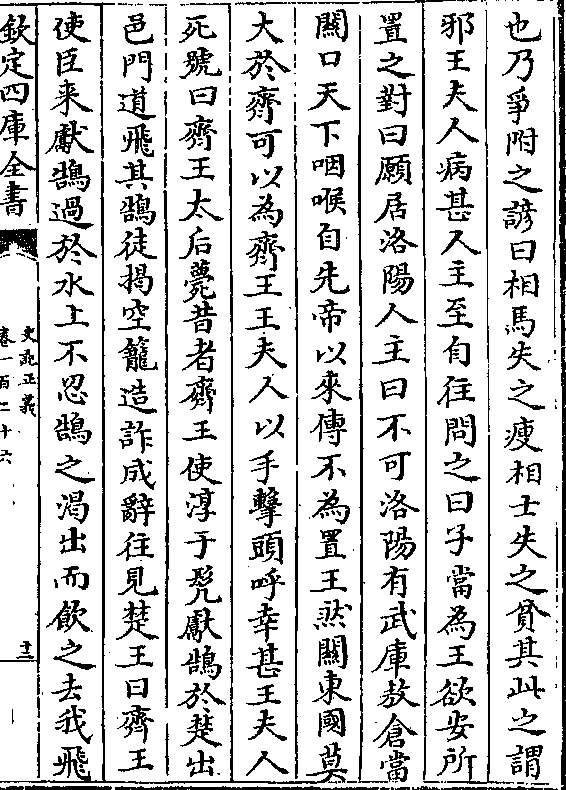 也乃爭附之諺曰相馬失之瘦相士失之貧其此之謂
邪王夫人病甚人主至自往問之曰子當為王欲安所
置之對曰願居洛陽人主曰不可洛陽有武庫敖倉當
關口天下咽喉自先帝以來傳不為置王然關東國莫
大於齊可以為齊王王夫人以手擊頭呼幸甚王夫人
死號曰齊王太后薨昔者齊王使淳于髠獻鵠於楚出
邑門道飛其鵠徒揭空籠造詐成辭往見楚王曰齊王
使臣来獻鵠過於水上不忍鵠之渴出而飲之去我飛
欽定四庫全書
史記正義
卷一百二十六
十二